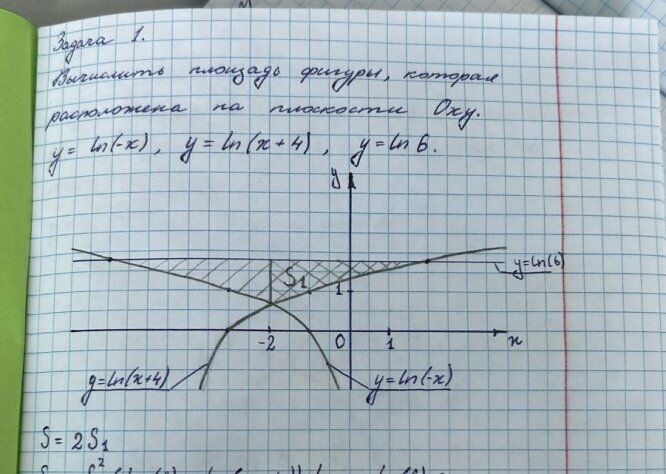 Задача 1.
Вычислить площадь фигуры, которая
расположена на плоскости Oxy.
y = ln(-x), y = ln(x+4), y = ln 6.
y
y=ln(6)
S₁
1
-2 0 1 x
y=ln(x+4) y=ln(-x)
S = 2S₁